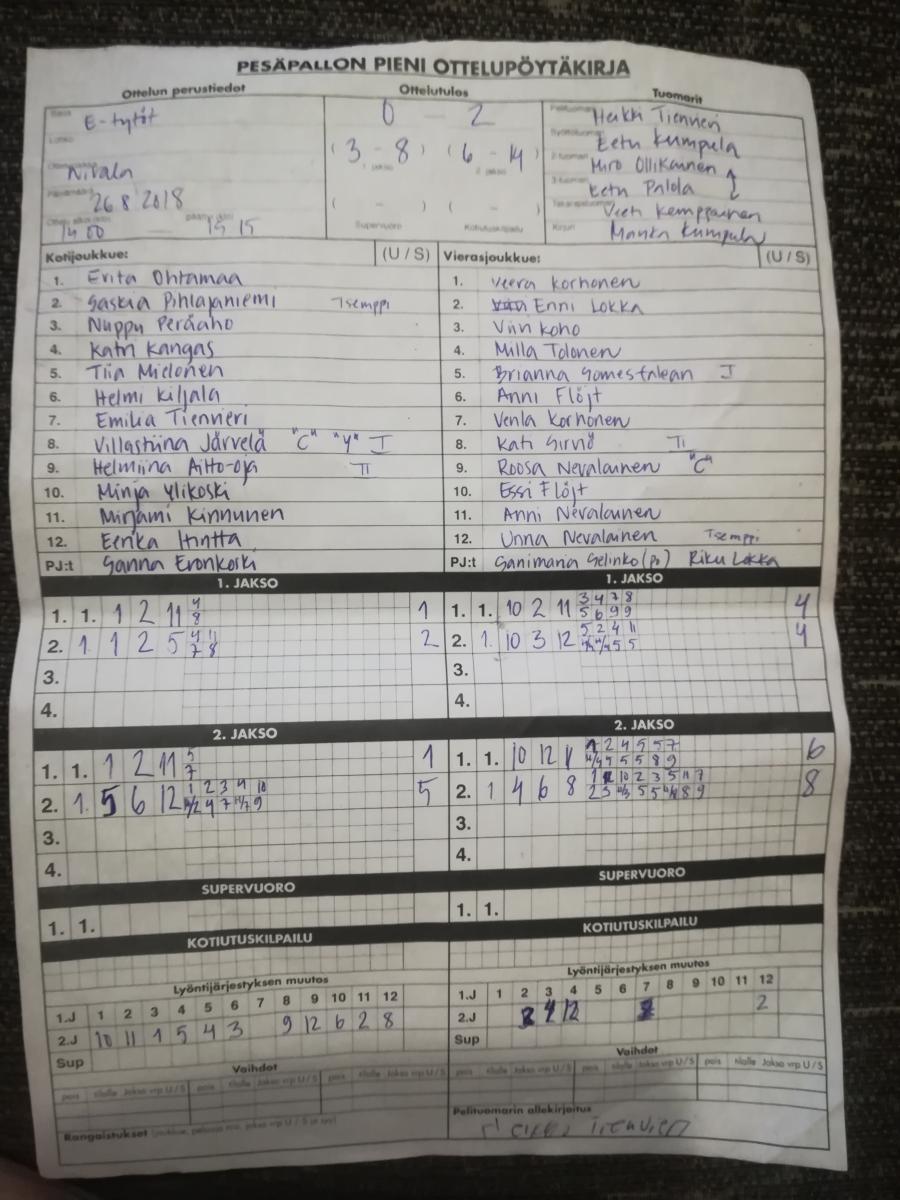 PESÄPALLON PIENI OTTELUPÖYTÄKIRJA
Ottelun perustiedot Ottelutulos Tuomarit
E-tytöt 0 - 2 Heikki Tienvieri
Lohko Eetu Kumpula
(3 - 8) (6 - 14) Miro Ollikainen
Nivala 1. jakso 2. jakso Eetu Palola
26.8 2018 ( - ) ( - ) Veeti Kemppainen
14 00 — 15 15 Supervuoro Kotiutuskilpailu Kirjuri Manta Kumpula
Kotijoukkue: (U / S) Vierasjoukkue: (U / S)
1. Erita Ohtamaa
2. Saskia Pihlajaniemi Tsemppi
3. Nuppu Peräaho
4. Katri Kangas
5. Tiia Mielonen
6. Helmi Kiljala
7. Emilia Tienvieri
8. Villastiina Järvelä "C" "Y" I
9. Helmiina Aitto-oja II
10. Minja Ylikoski
11. Mirjami Kinnunen
12. Eerika Hintta
PJ:t Sanna Eronkoski
1. Veera Korhonen
2. Enni Lokka
3. Viin Koho
4. Milla Tolonen
5. Brianna I
6. Anni Flöjt
7. Venla Korhonen
8. Kati Sirviö II
9. Roosa Nevalainen "C"
10. Essi Flöjt
11. Anni Nevalainen
12. Unna Nevalainen Tsemppi
PJ:t Sanimaria Selinko (po) Riku Lokka
1. JAKSO 1. JAKSO
1. 1. 1 2 11 4 8 1
2. 1. 1 2 5 4 11 7 8 2
3.
4.
1. 1. 10 2 11 3 4 7 8 5 6 9 9 4
2. 1. 10 3 12 5 2 4 11 5 5 4
3.
4.
2. JAKSO 2. JAKSO
1. 1. 1 2 11 5 7 1
2. 1. 5 6 12 1 2 3 4 10 4 7 9 5
3.
4.
1. 1. 10 12 11 2 4 5 5 7 5 5 5 8 9 6
2. 1 4 6 8 10 2 3 5 11 7 5 5 8 9 8
3.
4.
SUPERVUORO SUPERVUORO
1. 1. 1. 1.
KOTIUTUSKILPAILU KOTIUTUSKILPAILU
Lyöntijärjestyksen muutos Lyöntijärjestyksen muutos
1.J 1 2 3 4 5 6 7 8 9 10 11 12
2.J 10 11 1 5 4 3 9 12 6 2 8
Sup
1.J 1 2 3 4 5 6 7 8 9 10 11 12
2.J 4 12 2
Sup
Vaihdot Vaihdot
pois tilalle Jakso vrp U / S pois tilalle Jakso vrp U / S pois tilalle Jakso vrp U / S
pois tilalle Jakso vrp U / S pois tilalle Jakso vrp U / S pois tilalle Jakso vrp U / S
Rangaistukset
Pelituomarin allekirjoitus